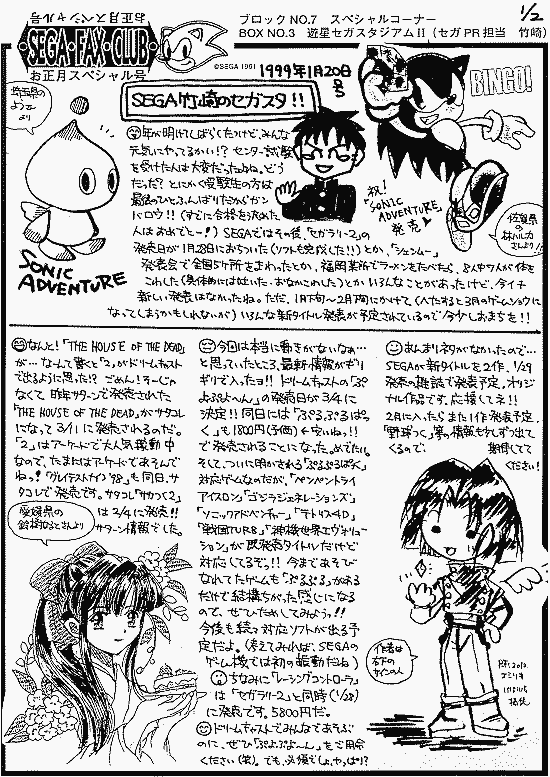 お正月スペシャル号
・SEGA・FAX・CLUB・
お正月スペシャル号
©SEGA 1991
ブロックNO.7 スペシャルコーナー
BOX NO.3 遊星セガスタジアムII(セガPR担当 竹崎)
1/2
1999年1月20日号
SEGA竹崎のセガスタ!!
BINGO!
埼玉県の
より
SONIC
ADVENTURE
祝!
「SONIC
ADVENTURE」
発売
佐賀県
の
林ハルカ
さんより!!
年が明けてしばらくたつけど、みんな
元気にやってるかい!?センター試験
を受けた人は大変だったよね。どう
だった?とにかく受験生の方は
最後のひとふんばりだからガン
バロウ!!(すでに合格を決めた
人はおめでとー!)SEGAではその後、「セガラリー2」の
発売日が1月28日におちついた(ソフトも完成した!!)とか、「シェンムー」
発表会で全国5ヶ所をまわったとか、福岡某所でラーメンをたべたら、8人中7人が体を
こわした(具体的には吐いた、おなかこわした)とかいろんなことがあったけど、今イチ
新しい発表はなかたね。ただ、1月下旬〜2月下旬にかけて、(へたすると3月のゲームショウに
なってしまうかもしれないが)いろんな新タイトル発表が予定されているので今少しおまちを!!
なんと!「THE HOUSE OF THE DEAD」
が…なーんて書くと「2」がドリームキャスト
で出るように思った!?ごめん!そーじゃ
なくて、昨年サターンで発売された
「THE HOUSE OF THE DEAD」がサタコレ
になって3/11に発売されるのだ。
「2」はアーケードで大人気稼動中
なので、たまにはアーケードであそんで
ねっ!「グレイテストナイン'98」も同日、サ
タコレで発売です。サタコレ「サカつく2」
は2/4に発売!!
サターン情報でした。
愛媛県の
鈴樹なるとさんより
今回は本当に動きがないなぁ…
と思っていたところ、最新情報がギリ
ギリで入ったヨ!!ドリームキャストの「ぷ
よぷよ〜ん」の発売日が3/4に
決定!!同日には「ぷるぷるぱっ
く」も1800円(予価)←安いねっ!!
で発売されることになった。おめでたい。
そして、ついに明かされる「ぷるぷるぱっく」
対応ゲームなのだが、「ペンペントライ
アイスロン」「ゴジラジェネレーションズ」
「ソニックアドベンチャー」「テトリス4D」
「戦国TURB」「神機世界エヴォリュー
ション」が既発売タイトルだけど
対応してるぞっ!!今まであそび
なれてたゲームも「ぷるぷる」がある
だけで結構ちがった感じになる
ので、ぜひためしてみよう!!
今後も続々対応ソフトが出る予
定だよ。(考えてみれば、SEGAの
ゲーム機では初の振動だね)
ちなみに「レーシングコントローラ」
は「セガラリー2」と同時(1/28)
に発売です。5800円だ。
ドリームキャストでみんなであそぶ
のに、ぜひ「ぷよぷよ〜ん」もご用命
ください(笑)。でも、必須でしょ、やっぱ!?
あんまりネタがなかったので…
SEGAが新タイトルを2作、1/29
発売の雑誌で発表予定。オリジ
ナル作品です。応援してネ!!
2月に入ったらまた1作発表予定。
「野球つく」等の情報も少しずつ出て
くるので、期待してて
ください!
作者は
右下の
サインの人